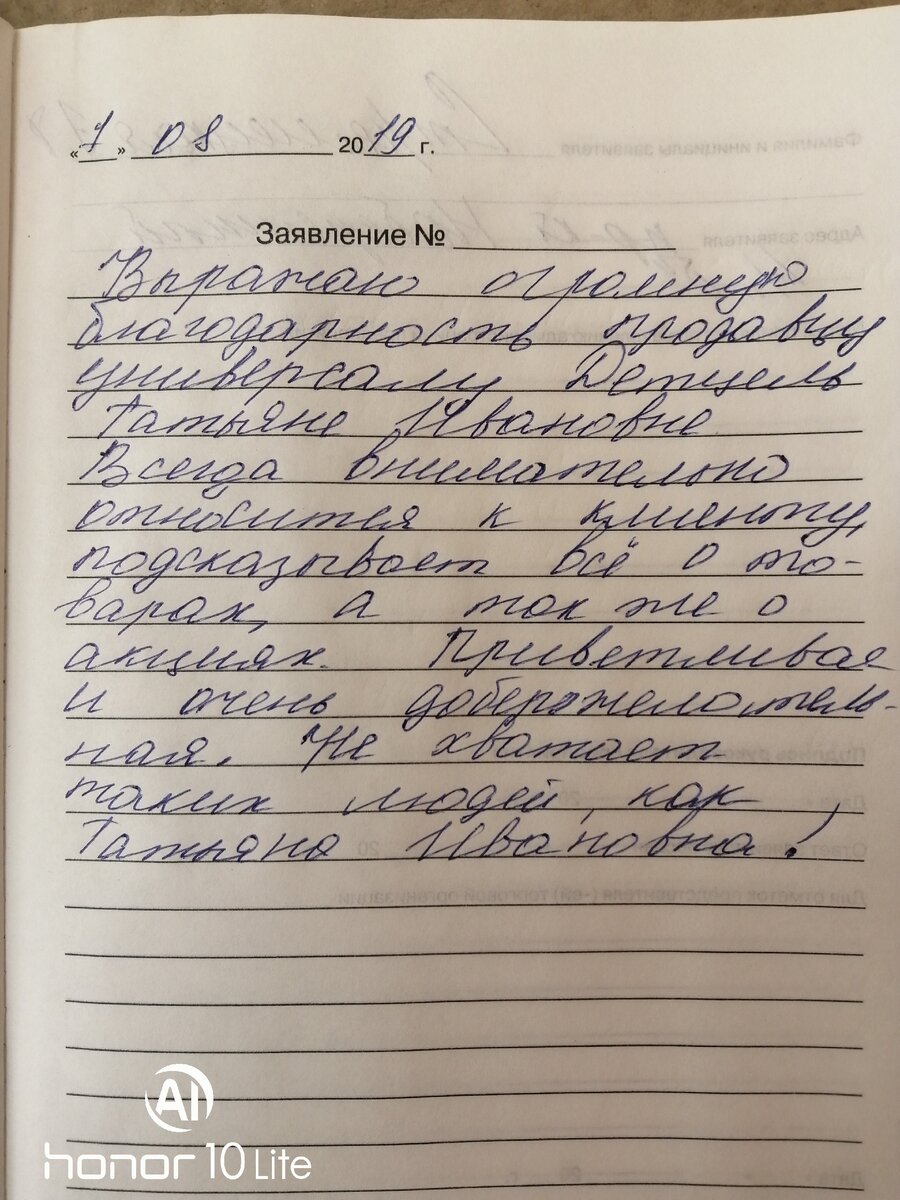 «1» 08 2019 г.
Заявление №
Выражаю огромную
благодарность продавцу
универсалу Детцель
Татьяне Ивановне.
Всегда внимательно
относится к клиенту,
подсказывает всё о то-
варах, а так же о
акциях. Приветливае
и очень доберожелатель-
ная. Не хватает
таких людей, как
Татьяна Ивановна!
AI
honor 10 Lite